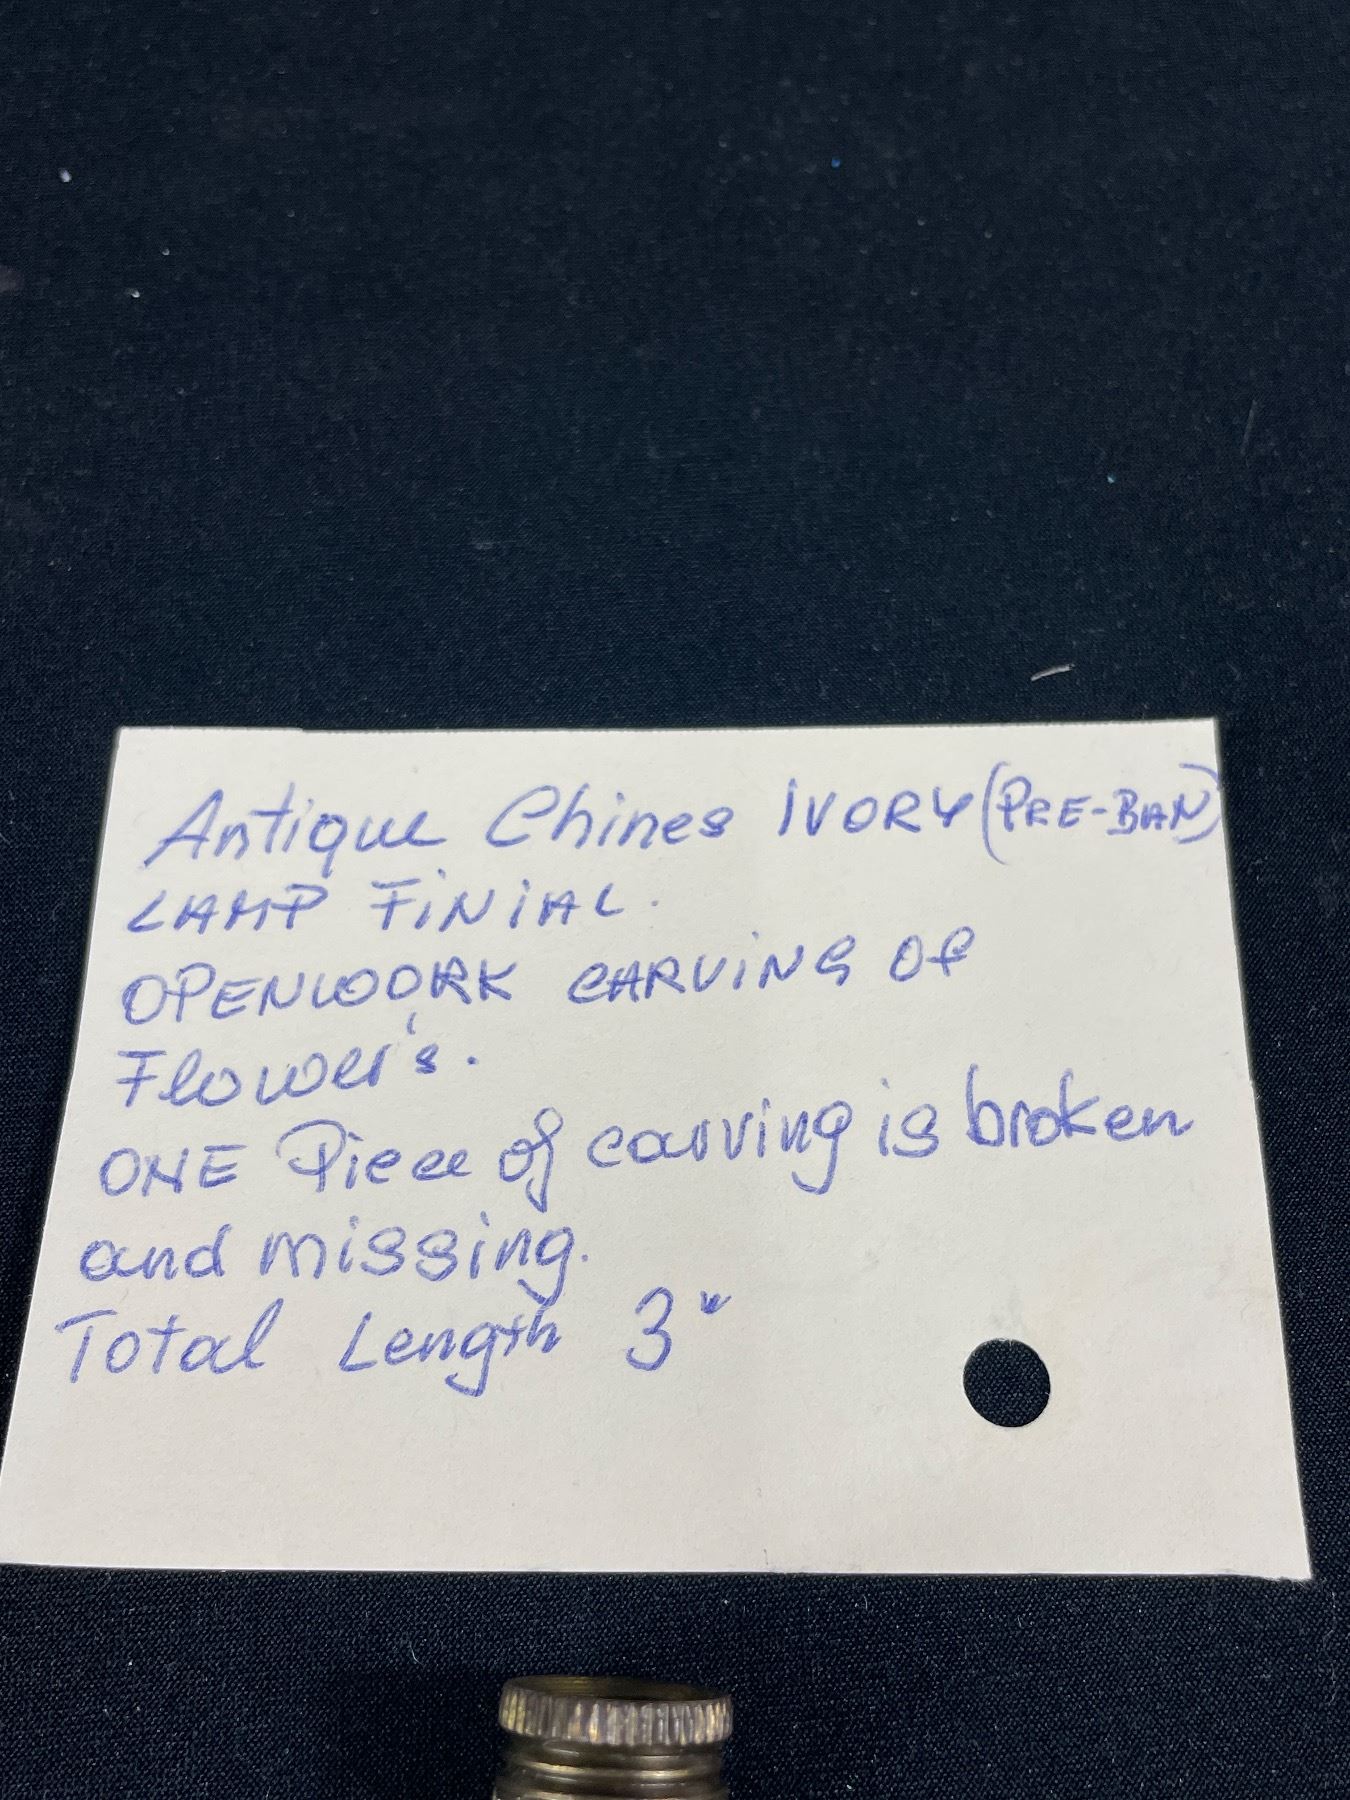 Antique Chines IVORY (PRE-BAN)
LAMP FINIAL.
OPENWORK CARVING OF
Flower's.
ONE Piece of carving is broken
and missing.
Total Length 3"